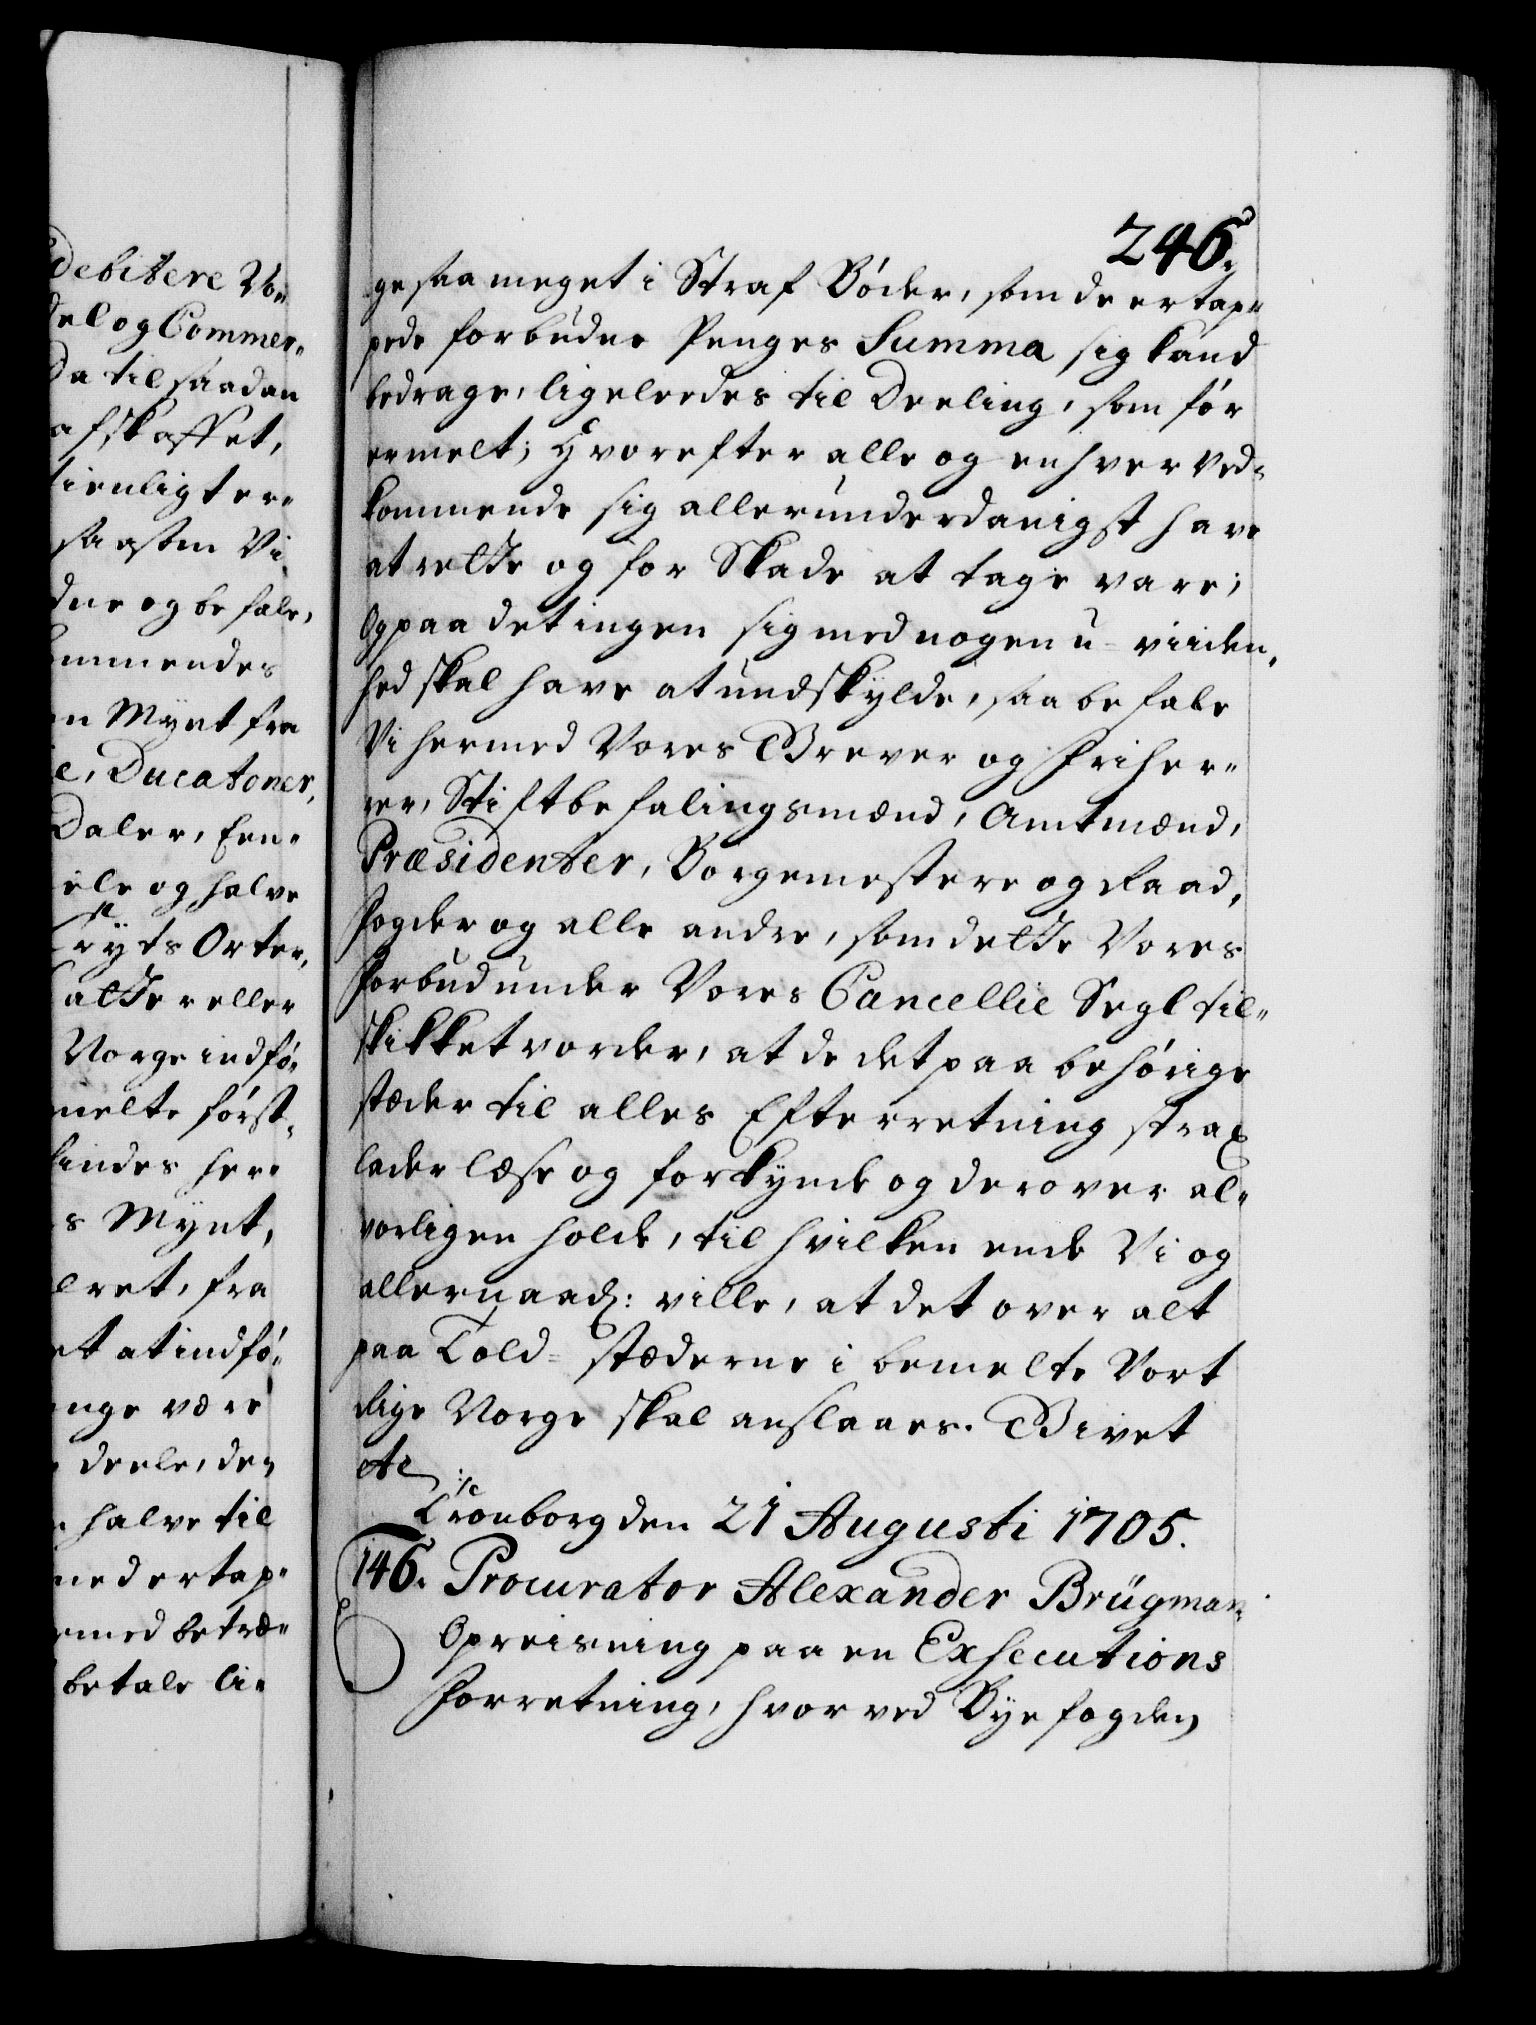 debitere Vo=
del og Commer=
Da til saadan
afskaffet,
tienligt er=
saasom Vi
dne og befale,
ommendes
en Mynt fra
e, Ducatoner,
Daler, Een=
ele og halve
Kryds Orter,
atter eller
Norge indfø=
melte først=
findes her=
s Mynt,
eret, fra
et at indfø=
nge være
deele, den
halve til
med ertap=
med betræ=
betale li=
246.
ge saa meget i Straf Bøder, som de ertap=
pede forbudne Penges Summa sig kand
bedrage, ligeleedes til Deeling, som før
ermelt; Hvorefter alle og enhver ved=
kommende sig allerunderdanigst have
at rette og for Skade at tage vare;
Og paa det ingen sig med nogen u-viiden=
hed skal have at undskylde, saa befale
Vi hermed Vores Grever og Friher=
rer, Stiftbefalingsmænd, Amtmænd,
Præsidenter, Borgemestere og Raad,
Fogder og alle andre, som dette Vores
Forbud under Vores Cancellie Segl til=
skikket vorder, at de det paa behørige
stæder til alles Efterretning strax
lader læse og forkynde og derover al=
vorligen holde, til hvilken ende Vi og
allernaad: ville, at det over alt
paa Told=stæderne i bemelte Vort
Rige Norge skal anslaaes. Givet
etc
Cronborg den 21 Augusti 1705.
146. Procurator Alexander Brügman
Opreisning paa en Exsecutions
Forretning, hvorved Byefogden